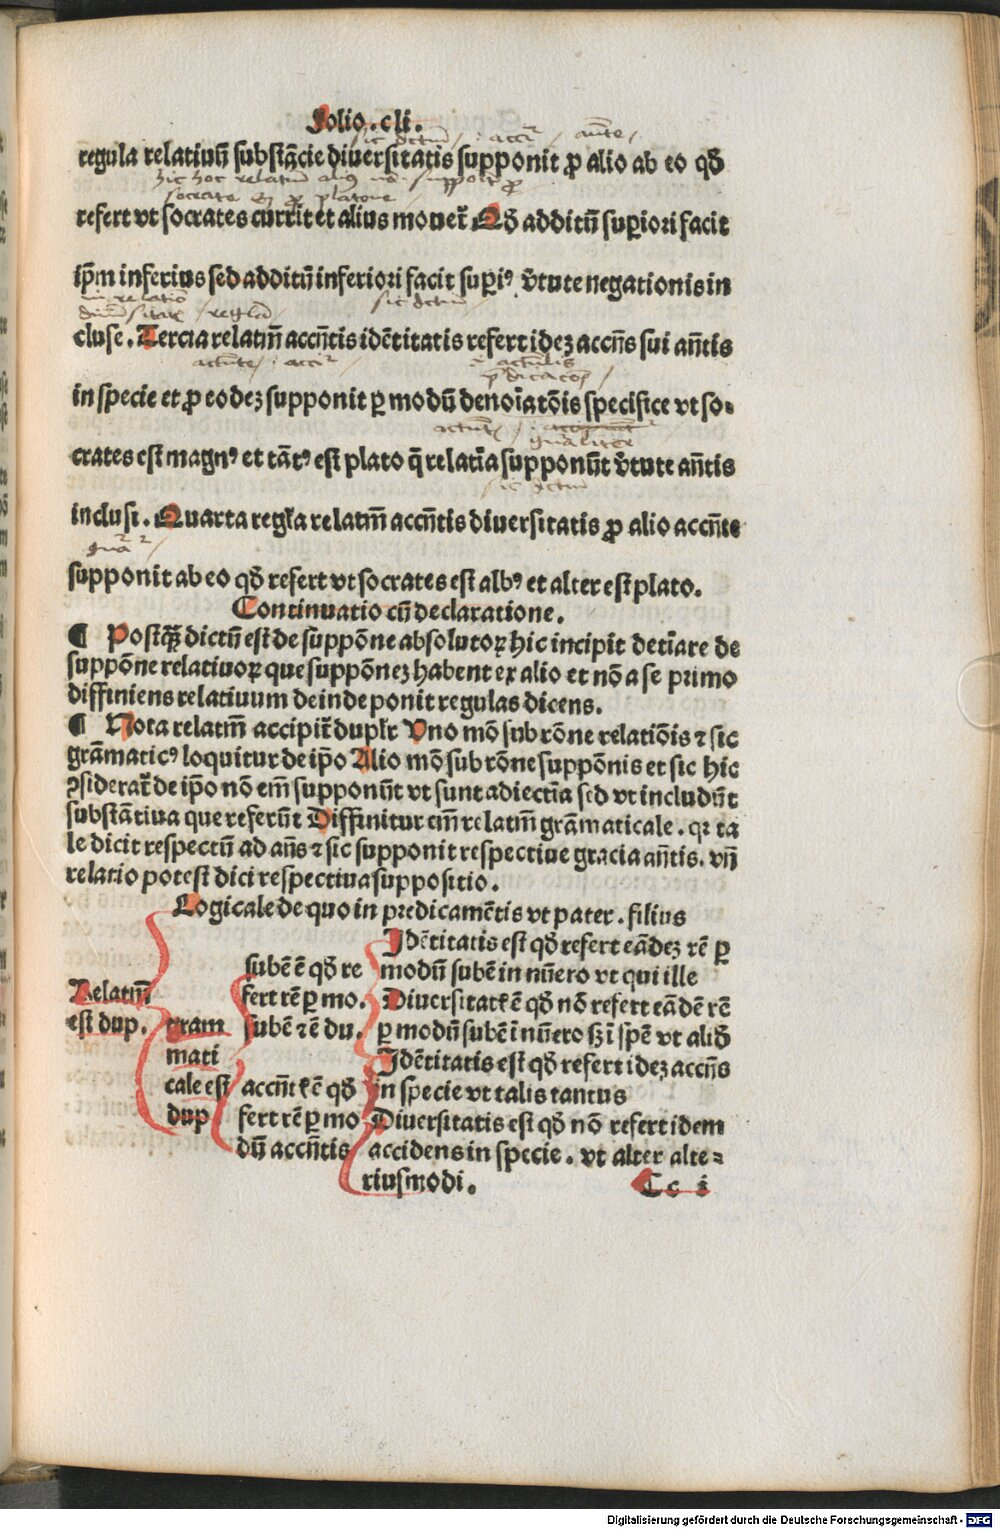 Folio.cli.
sic dictum / : acc̄r / an̄te /
regula relatiuū substācie diuersitatis supponit ꝓ alio ab eo qđ
hic hoc relatiuū alius nō supponit ꝓ
socrate ꝫ ꝓ platone
refert vt socrates currit et alius mouet᷑ Qđ additū suꝑiori facit
ip̄m inferius sed additū inferiori facit suꝑiꝰ v̄tute negationis in
in relatio
sic dictum
cluse. Tercia relatiū accn̄tis idētitatis refert ideꝫ accn̄s sui an̄tis
actualis
p̄dicacōꝫ /
in specie et ꝓ eodeꝫ supponit ꝑ modū denoīatōis specifice vt so⸗
qualiter
crates est magnꝰ et tātꝰ est plato q̄ relatīa supponūt v̄tute an̄tis
sic dictum
inclusi. Quarta regl̄a relatiū accn̄tis diuersitatis ꝓ alio accn̄te
supponit ab eo qđ refert vt socrates est albꝰ et alter est plato.
Continuatio cū declaratione.
¶ Postq̄ꝫ dictū est de suppōne absolutoꝝ hic incipit det̄iare de
suppōne relatiuoꝝ que suppōneꝫ habent ex alio et nō a se primo
diffiniens relatiuum deinde ponit regulas dicens.
¶ Nota relatiū accipit᷑ duplr̄ Uno mō sub rōne relatiōis ⁊ sic
grāmaticꝰ loquitur de ip̄o Alio mō sub rōne suppōnis et sic hic
ꝯsiderat᷑ de ip̄o nō em̄ supponūt vt sunt adiectīa sed vt includūt
substātiua que referūt Diffinitur em̄ relatiū grāmaticale. qꝛ ta
le dicit respectū ad an̄s ⁊ sic supponit respectiue gracia an̄tis. vn̄
relatio potest dici respectiua suppositio.
Logicale de quo in predicamētis vt pater. filius
Relatiū
est dup.
gram
mati
cale est
dup
subē ē qđ re
fert rē ꝑ mo.
subē ⁊ ē du.
accn̄tꝭ ē qđ
fert rē ꝑ mo
dū accn̄tis
Idētitatis est qđ refert eādeꝫ rē ꝑ
modū subē in nūero vt qui ille
Diuersitatꝭ ē qđ nō refert eādē rē
ꝑ modū subē ī nūero sꝫ ī spē vt aliđ
Idētitatis est qđ refert ideꝫ accn̄s
in specie vt talis tantus
Diuersitatis est qđ nō refert idem
accidens in specie. vt alter alte⸗
riusmodi.
Cc i
Digitalisierung gefördert durch die Deutsche Forschungsgemeinschaft - DFG